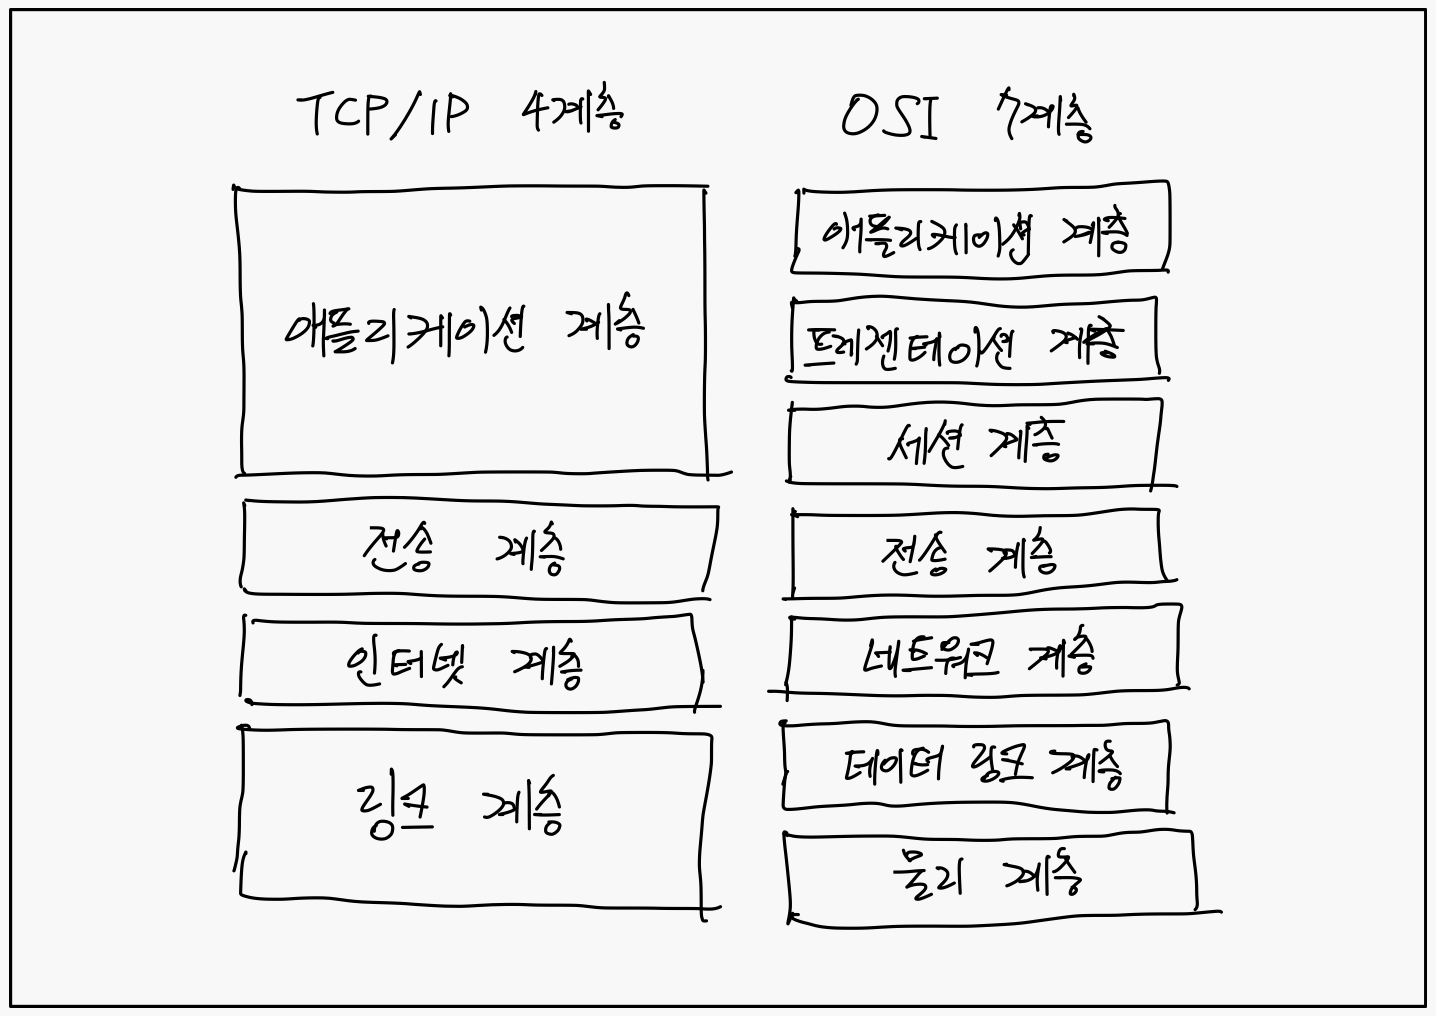 TCP/IP 4계층
애플리케이션 계층
전송 계층
인터넷 계층
링크 계층
OSI 7계층
애플리케이션 계층
프레젠테이션 계층
세션 계층
전송 계층
네트워크 계층
데이터 링크 계층
물리 계층